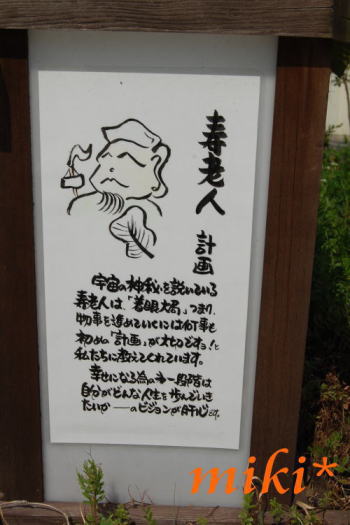 寿老人
計画
宇宙の神秘を説いている
寿老人は、「着眼大局」つまり、
物事を進めていくには何事も
初めの「計画」が大切ですョ！と
私たちに教えてくれています。
幸せになる為の第一段階は
自分がどんな人生を歩んでいき
たいか――のビジョンが肝心です。
miki*